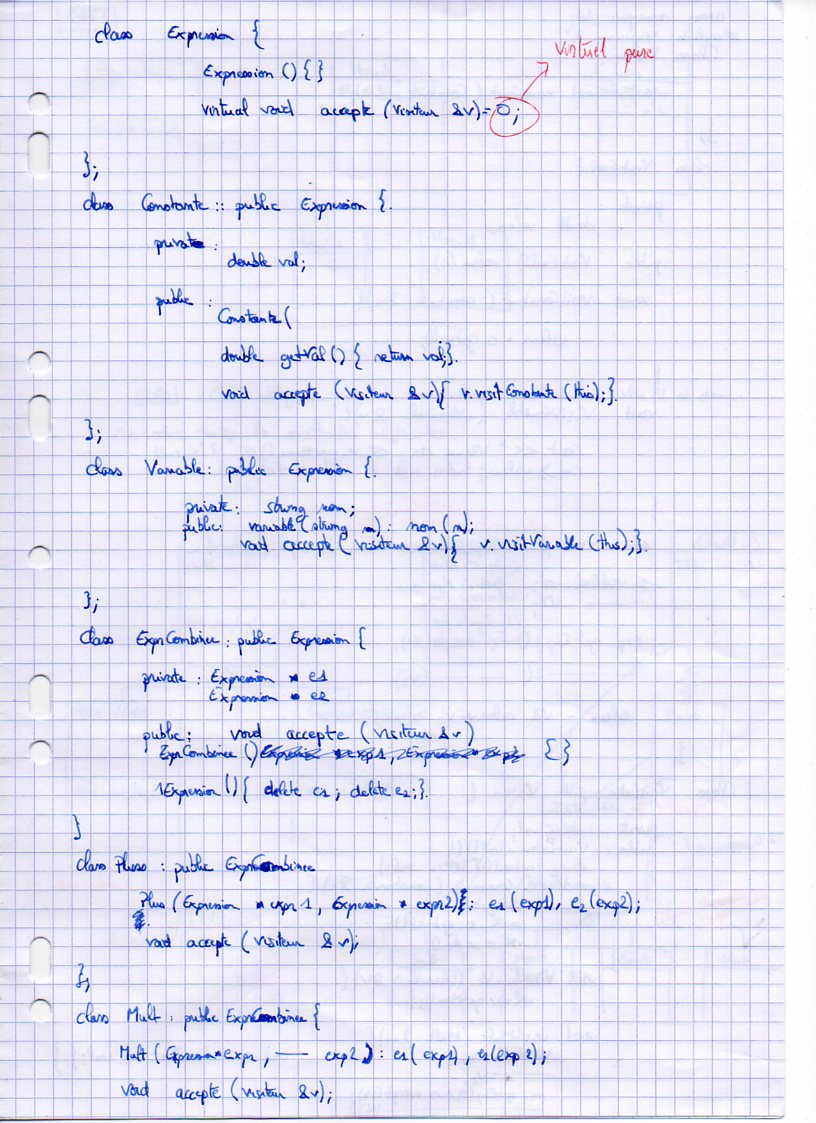 class Expression {
Virtuel pure
Expression () {}
virtual void accepte (Visiteur &v)=0;
};
class Constante :: public Expression {.
private :
double val;
public :
Constante (
double getVal () { return val;}.
void accepte (Visiteur &v){ v.visitConstante (this);}.
};
class Variable : public Expression {.
private : string nom;
public : variable (string n) : nom (n);
void accepte (Visiteur &v){ v.visitVariable (this);}.
};
class ExprCombinee : public Expression {
private : Expression * e1
Expression * e2
public : void accepte (Visiteur &v)
ExprCombinee () {}
~Expression () { delete e1 ; delete e2;}.
}
class Pluso : public ExprCombinee
Plus (Expression * expr1, Expression * expr2) : e1 (exp1), e2 (exp2);
void accepte (Visiteur & v);
};
class Mult : public ExprCombinee {
Mult (Expression*expr, —— exp2) : e1( exp1) , e2(exp2);
void accepte (Visiteur &v);